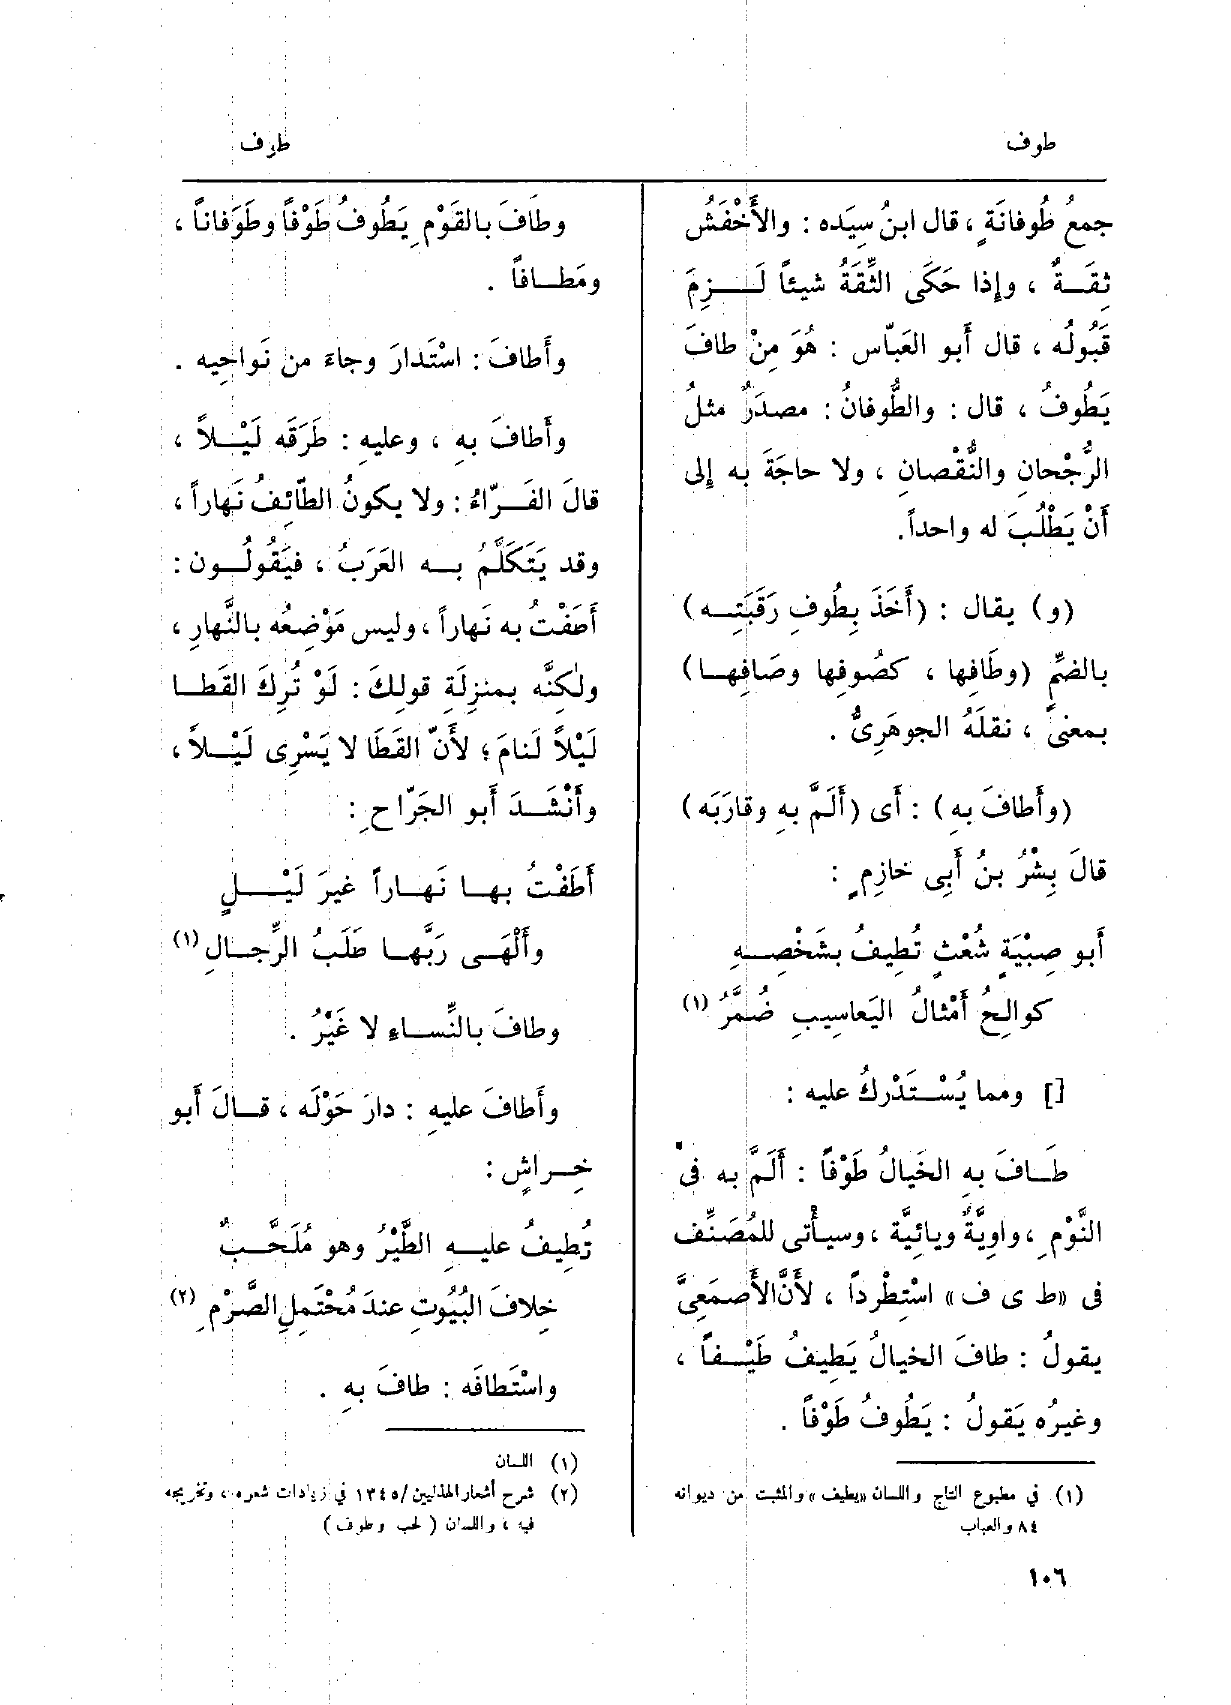 طوف
طوف
جمعُ طُوفانَةٍ ، قال ابنُ سِيَده : والأَخْفَشُ
ثِقَـةٌ ، وإذا حَكَى الثِّقَةُ شيئاً لَـــزِمَ
قَبُولُه ، قال أَبو العَبّاس : هُوَ مِنْ طافَ
يَطُوفُ ، قال : والطُّوفانُ : مصدَرٌ مثلُ
الرُّجْحانِ والنُّقْصانِ ، ولا حاجَةَ به إِلى
أَنْ يَطْلُبَ له واحداً.
(و) يقال : (أَخَذَ بِطُوفِ رَقَبَتِـــه)
بالضمِّ (وطَافِها ، كصُوفِها وصَافِهـا)
بمعنىً ، نقلَهُ الجوهَرِىُّ .
(وأَطافَ بهِ) : أَى (أَلَمَّ بهِ وقارَبَه)
قالَ بِشْرُ بنُ أَبِى خازِمٍ :
أَبو صِبْيَةٍ شُعْثٍ تُطِيفُ بشَخْصِـــهِ
كوالِحُ أَمْثالُ اليَعاسِيبِ ضُمَّرُ (١)
[] ومما يُسْــتَدْركُ عليه :
طَــافَ بهِ الخَيالُ طَوْفاً : أَلَمَّ به فِىْ
النَّوْمِ ، واوِيَّةٌ ويائِيَّة ، وسيـأْتى للمُصَنِّف
فى «ط ى ف» اسْتِطْرداً ، لأَنَّ الأَصمَعِىَّ
يقولُ : طافَ الخيالُ يَطِيفُ طَيْــفاً ،
وغيرُه يَقولُ : يَطُوفُ طَوْفاً .
(١) في مطبوع التاج واللسان «يطيف» والمثبت من ديوانه
٨٤ والعباب
وطَافَ بالقَوْمِ يَطُوفُ طَوْفاً وطَوَفاناً ،
ومَطــافاً .
وأَطافَ : اسْتَدارَ وجاءَ من نَواحِيه .
وأَطافَ بهِ ، وعليهِ : طَرَقَه لَيْـــلاً ،
قالَ الفَــرّاءُ : ولا يكونُ الطّائِفُ نَهاراً ،
وقد يَتَكَلَّمُ بـــه العَرَبُ ، فيَقُولُــون :
أَطَفْتُ به نَهاراً ، وليس مَوْضِعُه بالنَّهارِ ،
ولٰكِنَّه بمنزِلَةِ قولِكَ : لَوْ تُرِكَ القَطــا
لَيْلاً لَنامَ ؛ لأَنّ القَطَا لا يَسْرِى لَيْــلاً ،
وأَنْشَــدَ أَبو الجَرّاحِ :
أَطَفْتُ بهــا نَهــاراً غيرَ لَيْــــلٍ
وأَلْهَــى رَبَّهــا طَلَبُ الرِّجــالِ (١)
وطافَ بالنِّســاءِ لا غَيْرُ .
وأَطافَ عليهِ : دارَ حَوْلَه ، قــالَ أَبو
خِــراشٍ :
تُطِيفُ عليــهِ الطَّيْرُ وهو مُلَحَّــبٌ
خِلافَ البُيُوتِ عندَ مُحْتَمِلِ الصَّرْمِ (٢)
واسْتَطافَه : طافَ بهِ .
(١) اللسان
(٢) شرح أشعار الهذليين /١٣٤٥ في زيادات شعره ، وتخريجه
فيه ، واللسان ( لحب وطوف )
١٠٦